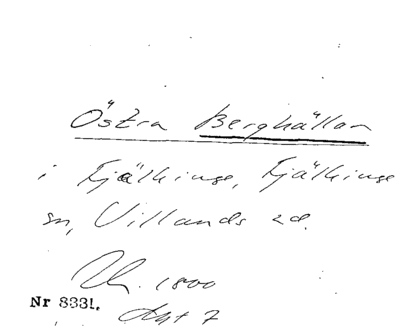 Östra Berghällan
i Fjälkinge, Fjälkinge
sn, Villands hd.
Uh. 1800
Nr 8331. Akt 7